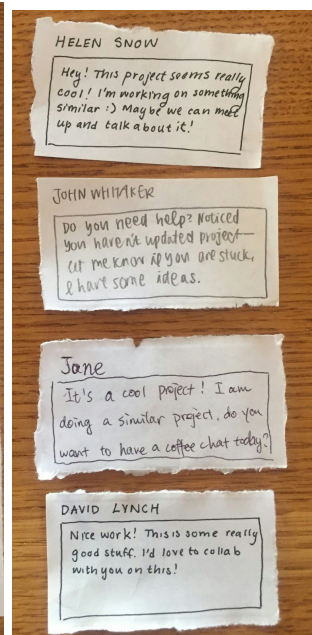 HELEN SNOW
Hey! This project seems really
cool! I'm working on something
similar :) Maybe we can meet
up and talk about it!
JOHN WHITAKER
Do you need help? Noticed
you haven't updated project—
let me know if you are stuck,
I have some ideas.
Jane
It's a cool project! I am
doing a similar project, do you
want to have a coffee chat today?
DAVID LYNCH
Nice work! This is some really
good stuff. I'd love to collab
with you on this!